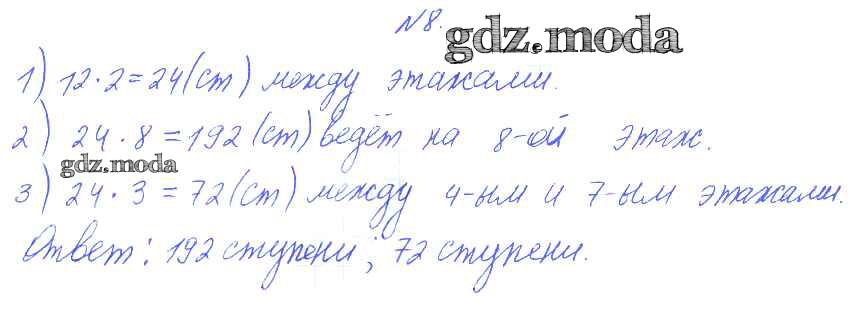 №8.
gdz.moda
1) 12·2=24(ст) между этажами.
2) 24·8=192(ст) ведёт на 8-ой этаж.
gdz.moda
3) 24·3=72(ст) между 4-ым и 7-ым этажами.
Ответ: 192 ступени; 72 ступени.